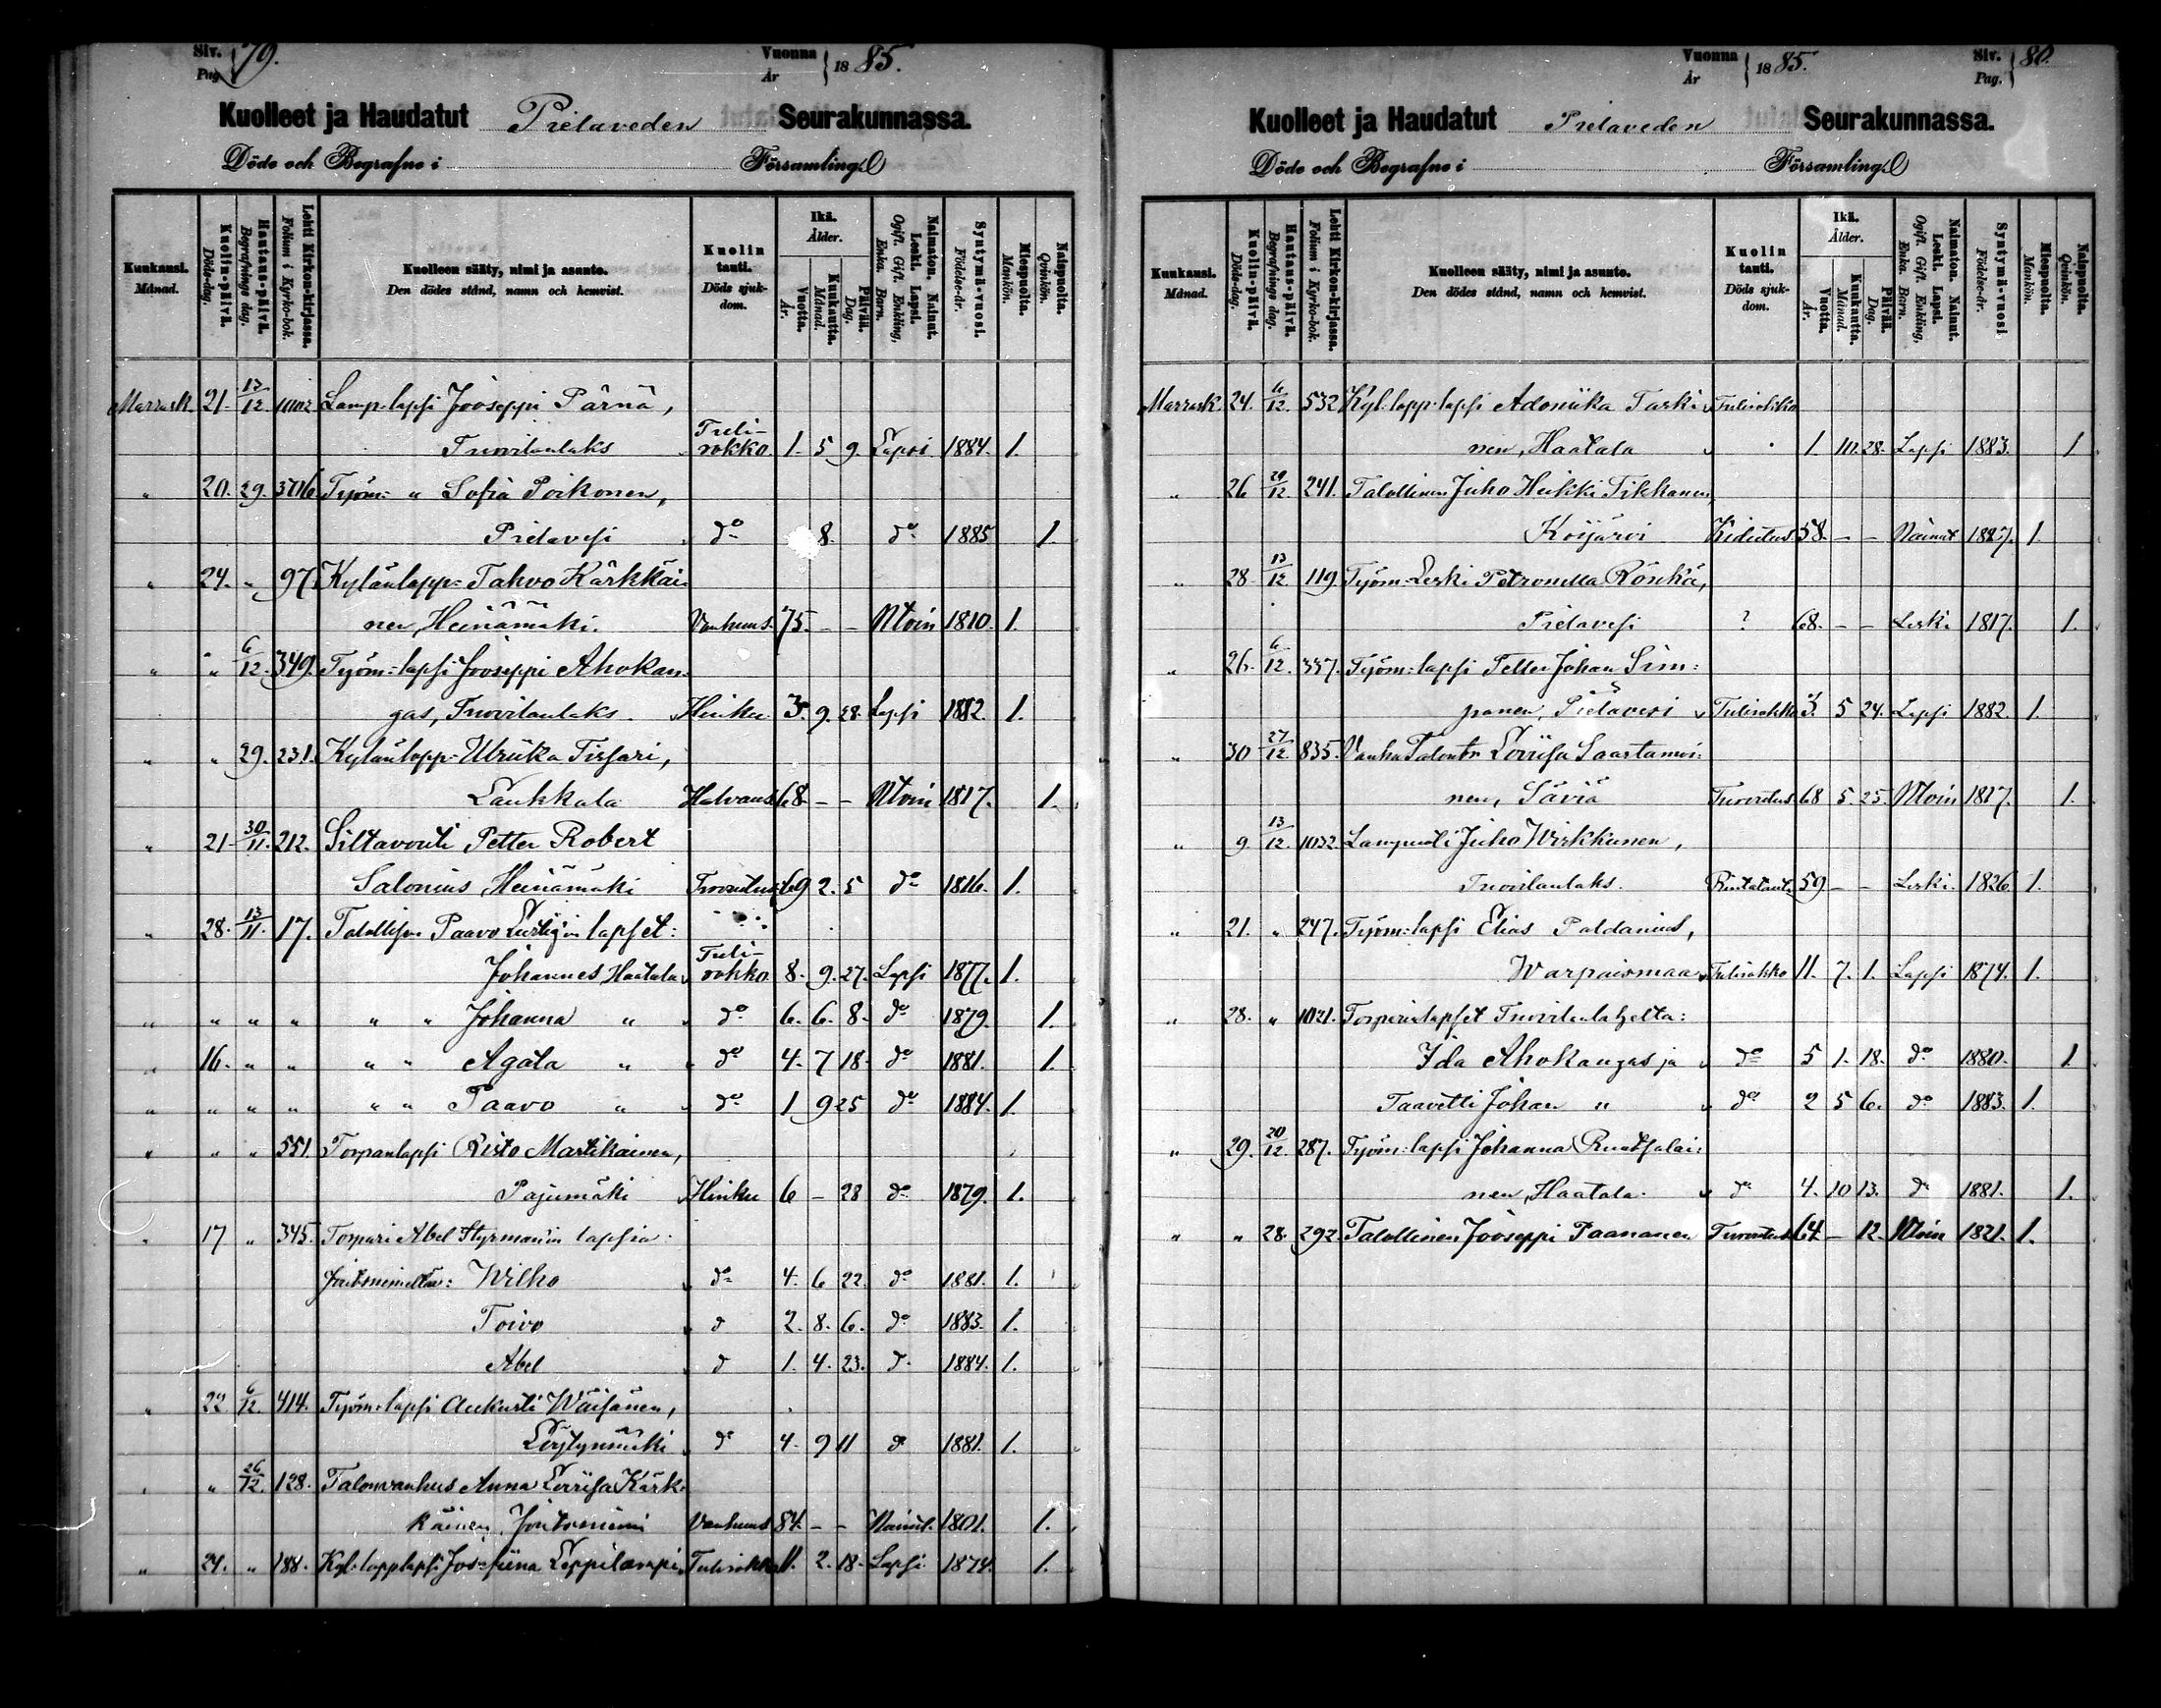 Siv. Pag. 79. Vuonna År 1885.
Kuolleet ja Haudatut Pielaveden Seurakunnassa.
Döde och Begrafne i Församling
Kuukausi. Månad. Kuolin-päivä. Döds-dag. Hautaus-päivä. Begrafnings dag. Lehti Kirkon-kirjassa. Folium i Kyrko-bok. Kuolleen sääty, nimi ja asunto. Den dödes stånd, namn och hemvist. Kuolin tauti. Döds sjuk-dom. Ikä. Ålder. Vuotta. År. Kuukautta. Månad. Päivää. Dag. Naimaton. Nainut. Leski. Lapsi. Ogift. Gift. Enkling, Enka. Barn. Syntymä-vuosi. Födelse-år. Miespuolta. Mankön. Naispuolta. Qvinkön.
Marrask. 21. 13/12 1002 Lamp. lapsi Jooseppi Pärnä,
Tuovilanlaks Tuli-rokko. 1. 5 9. Lapsi 1884. 1.
" 20. 29. 3706 Työm: " Sofia Poikonen,
Pielavesi do 8. do 1885 1.
" 24. " 97. Kylänlopp: Tahvo Kärkkäi-
nen, Heinämäki. Vanhuus. 75. - - Ntoin 1810. 1.
" " 6/12. 349. Työm: lapsi Jooseppi Ahokan-
gas, Tuovilanlaks. Hinku. 3. 9. 28. Lapsi 1882. 1.
" " 29. 231. Kylänlopp: Ulriika Tissari,
Laukkala Halvaus 68. - - Ntoin 1817. 1.
" 21 30/11. 212. Siltavouti Petter Robert
Salonius Heinämäki Tuvotus 69 2. 5 do 1816. 1.
" 28. 13/11. 17. Talollisen Paavo lapset:
Johannes Haatala Tuli-rokko. 8. 9. 27. Lapsi 1877. 1.
" " " " " " Johanna " do 6. 6. 8. do 1879. 1.
" 16. " " " " Agata " do 4. 7 18. do 1881. 1.
" " " " " " Paavo " do 1 9 25 do 1884. 1.
" " " 551. Torpanlapsi Risto Martikainen,
Pajumäki Hinku 6 - 28 do 1879. 1.
" 17 " 345. Torpari Abel Styrman'in lapsia:
Joutsniemeltä: Wilho do 4. 6 22. do 1881. 1.
Toivo d 2. 8. 6. do 1883. 1.
Abel d 1. 4. 23. d. 1884. 1.
" 22 6/12. 414. Työm: lapsi Aukusti Wäisänen,
Löytynmäki do 4. 9 11 d 1881. 1.
" " 26/12. 128. Talonvanhus Anna Loviisa Kärk-
käinen, Joutsniemi Vanhuus 84. - - Nainut. 1801. 1.
" 24. " 188. Kyl: lopplapsi Josefiina Leppilampi Tulirokko 11. 2. 18. Lapsi. 1874. 1.
Vuonna År 1885. Siv. Pag. 80.
Kuolleet ja Haudatut Pielaveden Seurakunnassa.
Döde och Begrafne i Församling
Kuukausi. Månad. Kuolin-päivä. Döds-dag. Hautaus-päivä. Begrafnings dag. Lehti Kirkon-kirjassa. Folium i Kyrko-bok. Kuolleen sääty, nimi ja asunto. Den dödes stånd, namn och hemvist. Kuolin tauti. Döds sjuk-dom. Ikä. Ålder. Vuotta. År. Kuukautta. Månad. Päivää. Dag. Naimaton. Nainut. Leski. Lapsi. Ogift. Gift. Enkling, Enka. Barn. Syntymä-vuosi. Födelse-år. Miespuolta. Mankön. Naispuolta. Qvinkön.
Marrask. 24. 6/12. 532 Kyl: lopp: lapsi Adoniika Taski- Tulirokko
nen, Haatala 1 10. 28. Lapsi 1883. 1
" 26 20/12. 241. Talollinen Juho Heikki Tikkanen,
Koijärvi Kidutus. 58. - - Nainut 1827. 1.
" 28. 13/12 119. Työm: Leski Petronella Rönkä,
Pielavesi ? 68. - - Leski 1817. 1.
" 26. 6/12. 337. Työm: lapsi Petter Johan Sim-
panen, Pielavesi Tulirokko 3. 5 24. Lapsi 1882. 1.
" 30 27/12. 835. Vanha Loviisa Saastamoi-
nen, Säviä Tuvotus. 68 5. 25. Ntoin 1817. 1.
" 9. 13/12. 1032 Lampuoti Juho Wirkkunen,
Tuovilanlaks. Rintataut. 59 - - Leski. 1826. 1.
" 21. " 247. Työm: lapsi Elias Paldanius,
Warpaismaa Tulirokko 11. 7. 1. Lapsi 1874. 1.
" 28. " 1021. Torparin lapset Tuovilanlahelta:
Ida Ahokangas ja do 5 1. 18. do 1880. 1.
Taavetti Johan " do 2 5 6. do 1883. 1.
" 29. 20/12 287. Työm: lapsi Johanna Ruotsalai-
nen, Haatala. do 4. 10 13. do 1881. 1.
" " 28. 292 Talollinen Jooseppi Paananen Tuvotus 64. - 12. Ntoin 1821. 1.